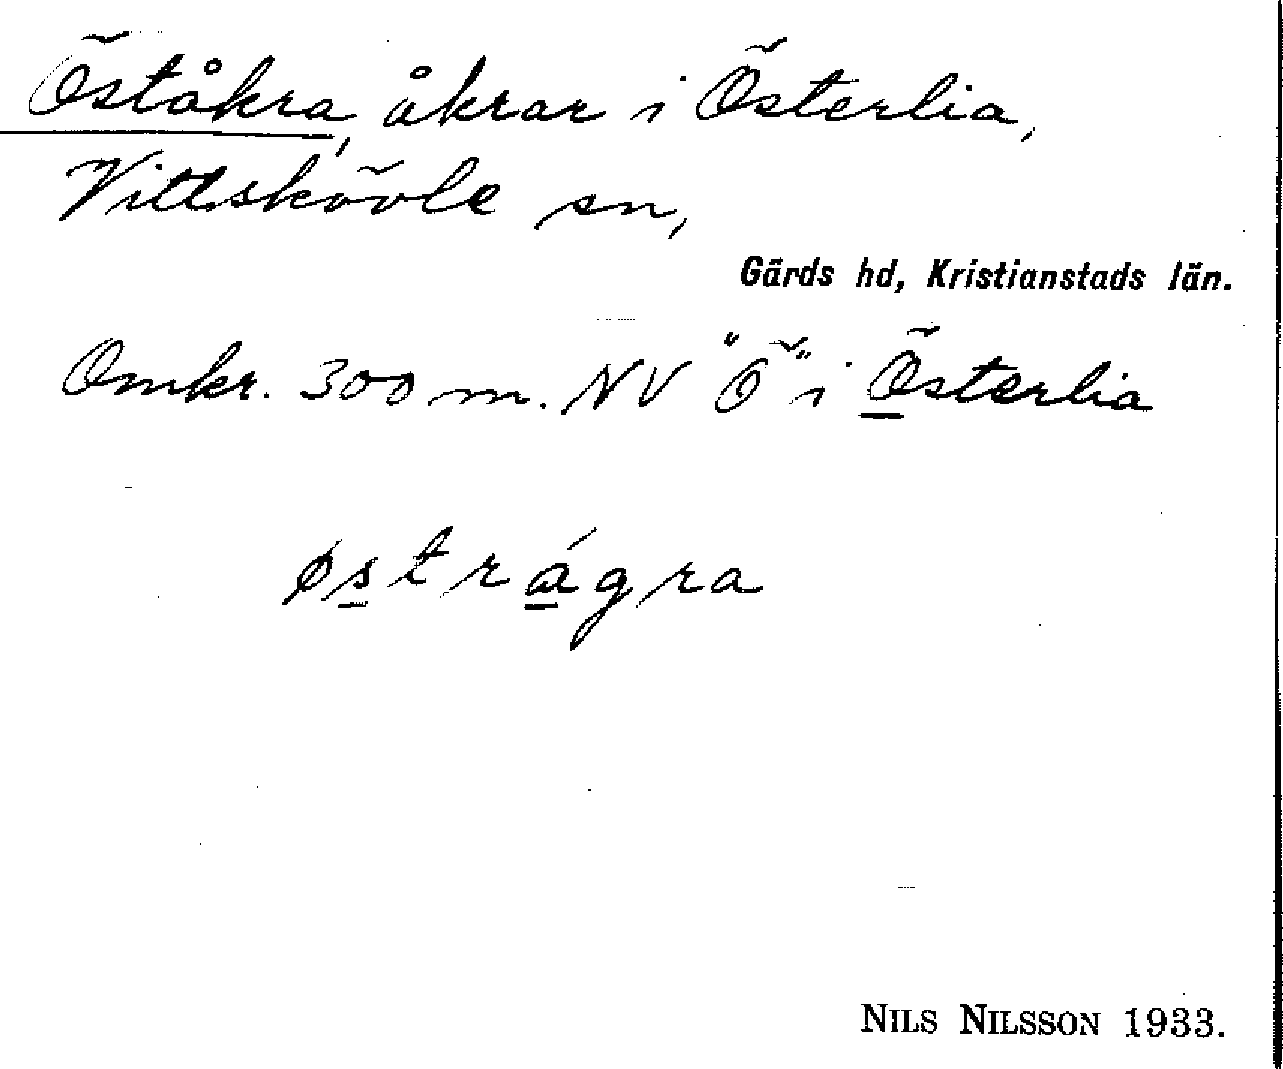 Öståkra, åkrar i Österlia,
Vittskövle sn,
Gärds hd, Kristianstads län.
Omkr. 300 m. NV "Ö" i Österlia
østrágra
NILS NILSSON 1933.